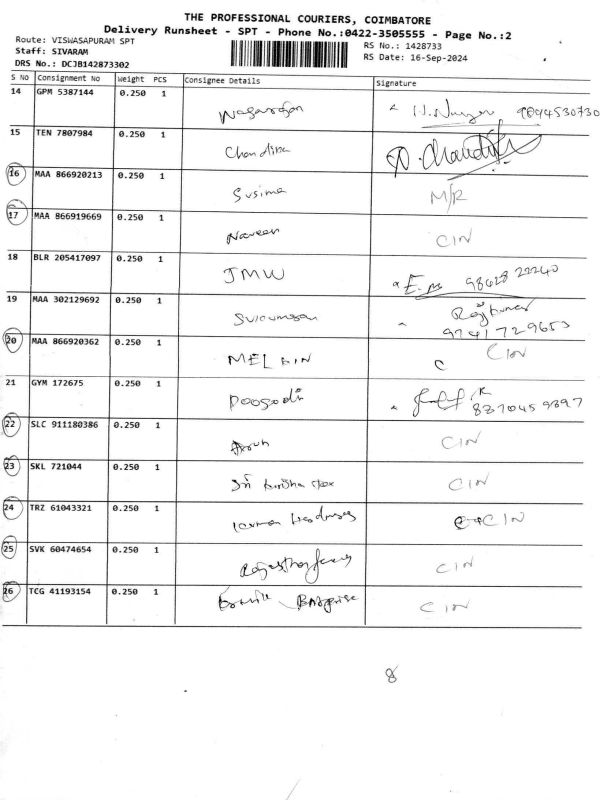 THE PROFESSIONAL COURIERS, COIMBATORE
Delivery Runsheet - SPT - Phone No.:0422-3505555 - Page No.:2
Route: VISWASAPURAM SPT
Staff: SIVARAM
DRS No.: DCJB142873302
RS No.: 1428733
RS Date: 16-Sep-2024
S No Consignment No Weight PCS Consignee Details Signature
14 GPM 5387144 0.250 1 Nagarajan 9894530730
15 TEN 7807984 0.250 1 Chandira
16 MAA 866920213 0.250 1 Susima M/R
17 MAA 866919669 0.250 1 Naveen CIN
18 BLR 205417097 0.250 1 JMW
19 MAA 302129692 0.250 1 Rajkumar 9741729653
20 MAA 866920362 0.250 1 C CIN
21 GYM 172675 0.250 1
22 SLC 911180386 0.250 1 Arun CIN
23 SKL 721044 0.250 1 CIN
24 TRZ 61043321 0.250 1 CIN
25 SVK 60474654 0.250 1 CIN
26 TCG 41193154 0.250 1 CIN
8